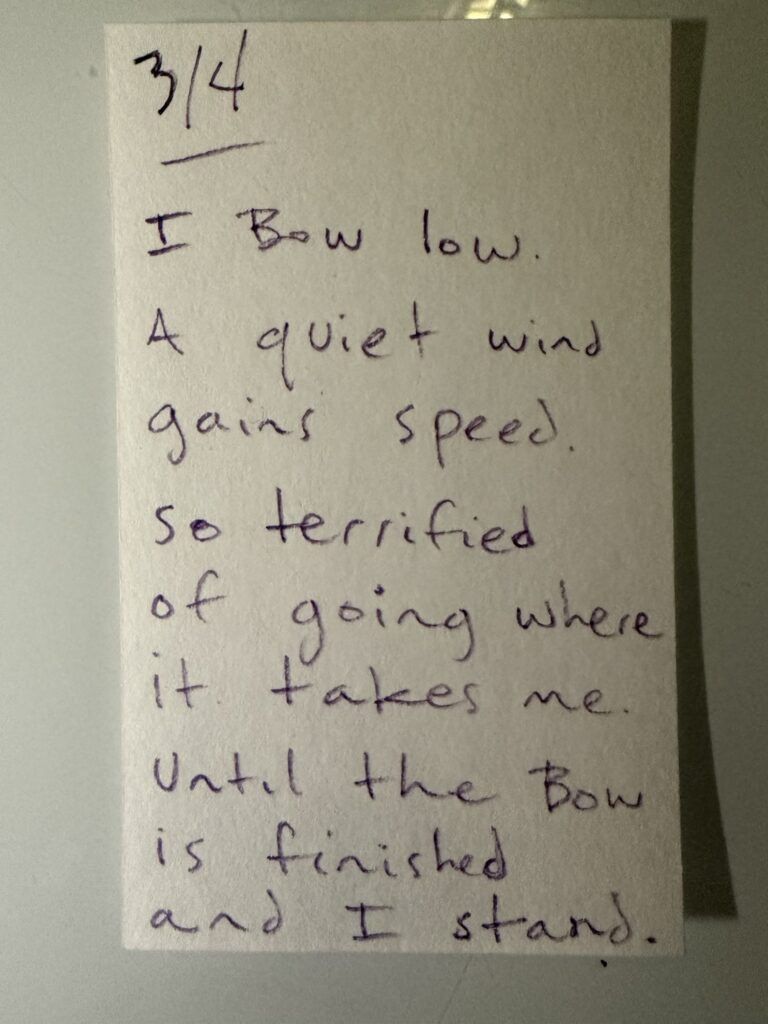 3/4
I Bow low.
A quiet wind
gains speed.
so terrified
of going where
it takes me.
Until the Bow
is finished
and I stand.